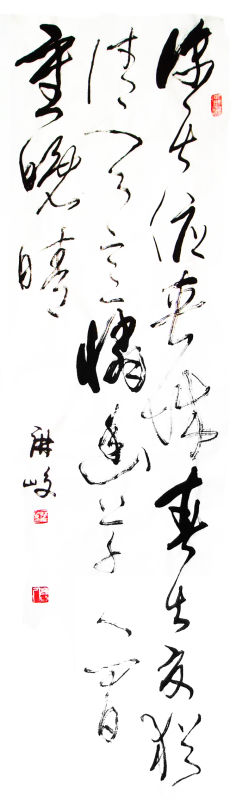 深居俯夾城春去夏猶
清天意憐幽草人間
重晚晴